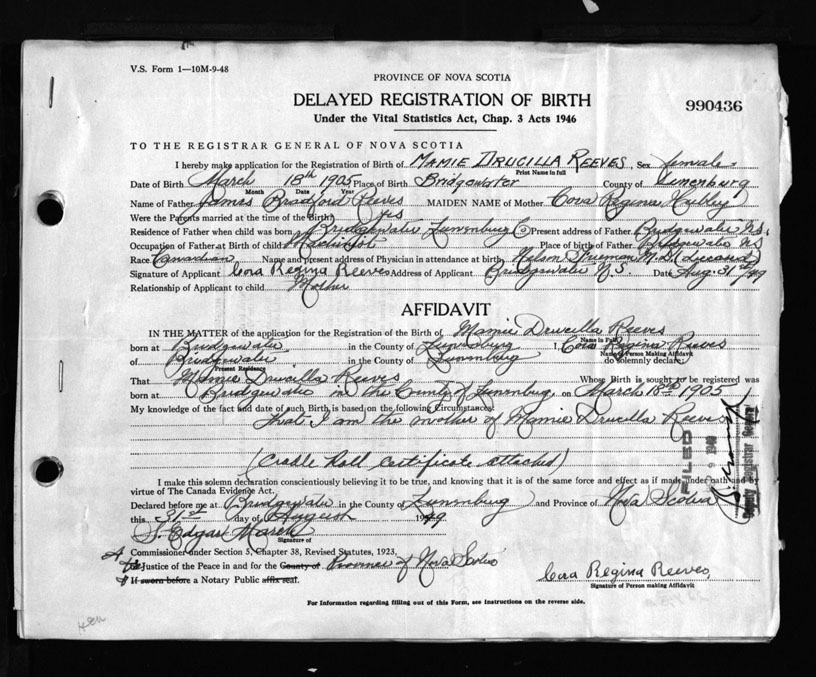 V.S. Form 1—10M-9-48
PROVINCE OF NOVA SCOTIA
DELAYED REGISTRATION OF BIRTH
990436
Under the Vital Statistics Act, Chap. 3 Acts 1946
TO THE REGISTRAR GENERAL OF NOVA SCOTIA
I hereby make application for the Registration of Birth of MAMIE DRUCILLA REEVES, Sex female
Print Name in full
Date of Birth March 18th 1905 Place of Birth Bridgewater County of Lunenburg
Month Date Year
Name of Father James Bradford Reeves MAIDEN NAME of Mother Cora Regina
Were the Parents married at the time of the Birth? yes
Residence of Father when child was born Bridgewater Lunenburg Co Present address of Father Bridgewater N.S.
Occupation of Father at Birth of child Machinist Place of birth of Father Bridgewater N.S
Race Canadian Name and present address of Physician in attendance at birth, Nelson M.D. (Deceased)
Signature of Applicant Cora Regina Reeves Address of Applicant Bridgewater N.S. Date Aug. 31st/49
Relationship of Applicant to child Mother
AFFIDAVIT
IN THE MATTER of the application for the Registration of the Birth of Mamie Drucilla Reeves
Name in Full
born at Bridgewater in the County of Lunenburg I, Cora Regina Reeves
Name of Person Making Affidavit
of Bridgewater in the County of Lunenburg do solemnly declare:
Present Residence
That Mamie Drucilla Reeves Whose Birth is sought to be registered was
born at Bridgewater in the County of Lunenburg, on March 18th 1905
My knowledge of the fact and date of such Birth is based on the following Circumstances:
That I am the mother of Mamie Drucilla Reeves
(Cradle Roll Certificate attached)
FILED
Deputy Registrar General
I make this solemn declaration conscientiously believing it to be true, and knowing that it is of the same force and effect as if made under oath and by
virtue of The Canada Evidence Act.
Declared before me at Bridgewater in the County of Lunenburg and Province of Nova Scotia
this 31st day of August 1949
S. Edgar March
Signature of
A Commissioner under Section 5, Chapter 38, Revised Statutes, 1923,
Justice of the Peace in and for the County of Province of Nova Scotia
If sworn before a Notary Public affix seal.
Cora Regina Reeves
Signature of Person making Affidavit
For Information regarding filling out of this Form, see Instructions on the reverse side.